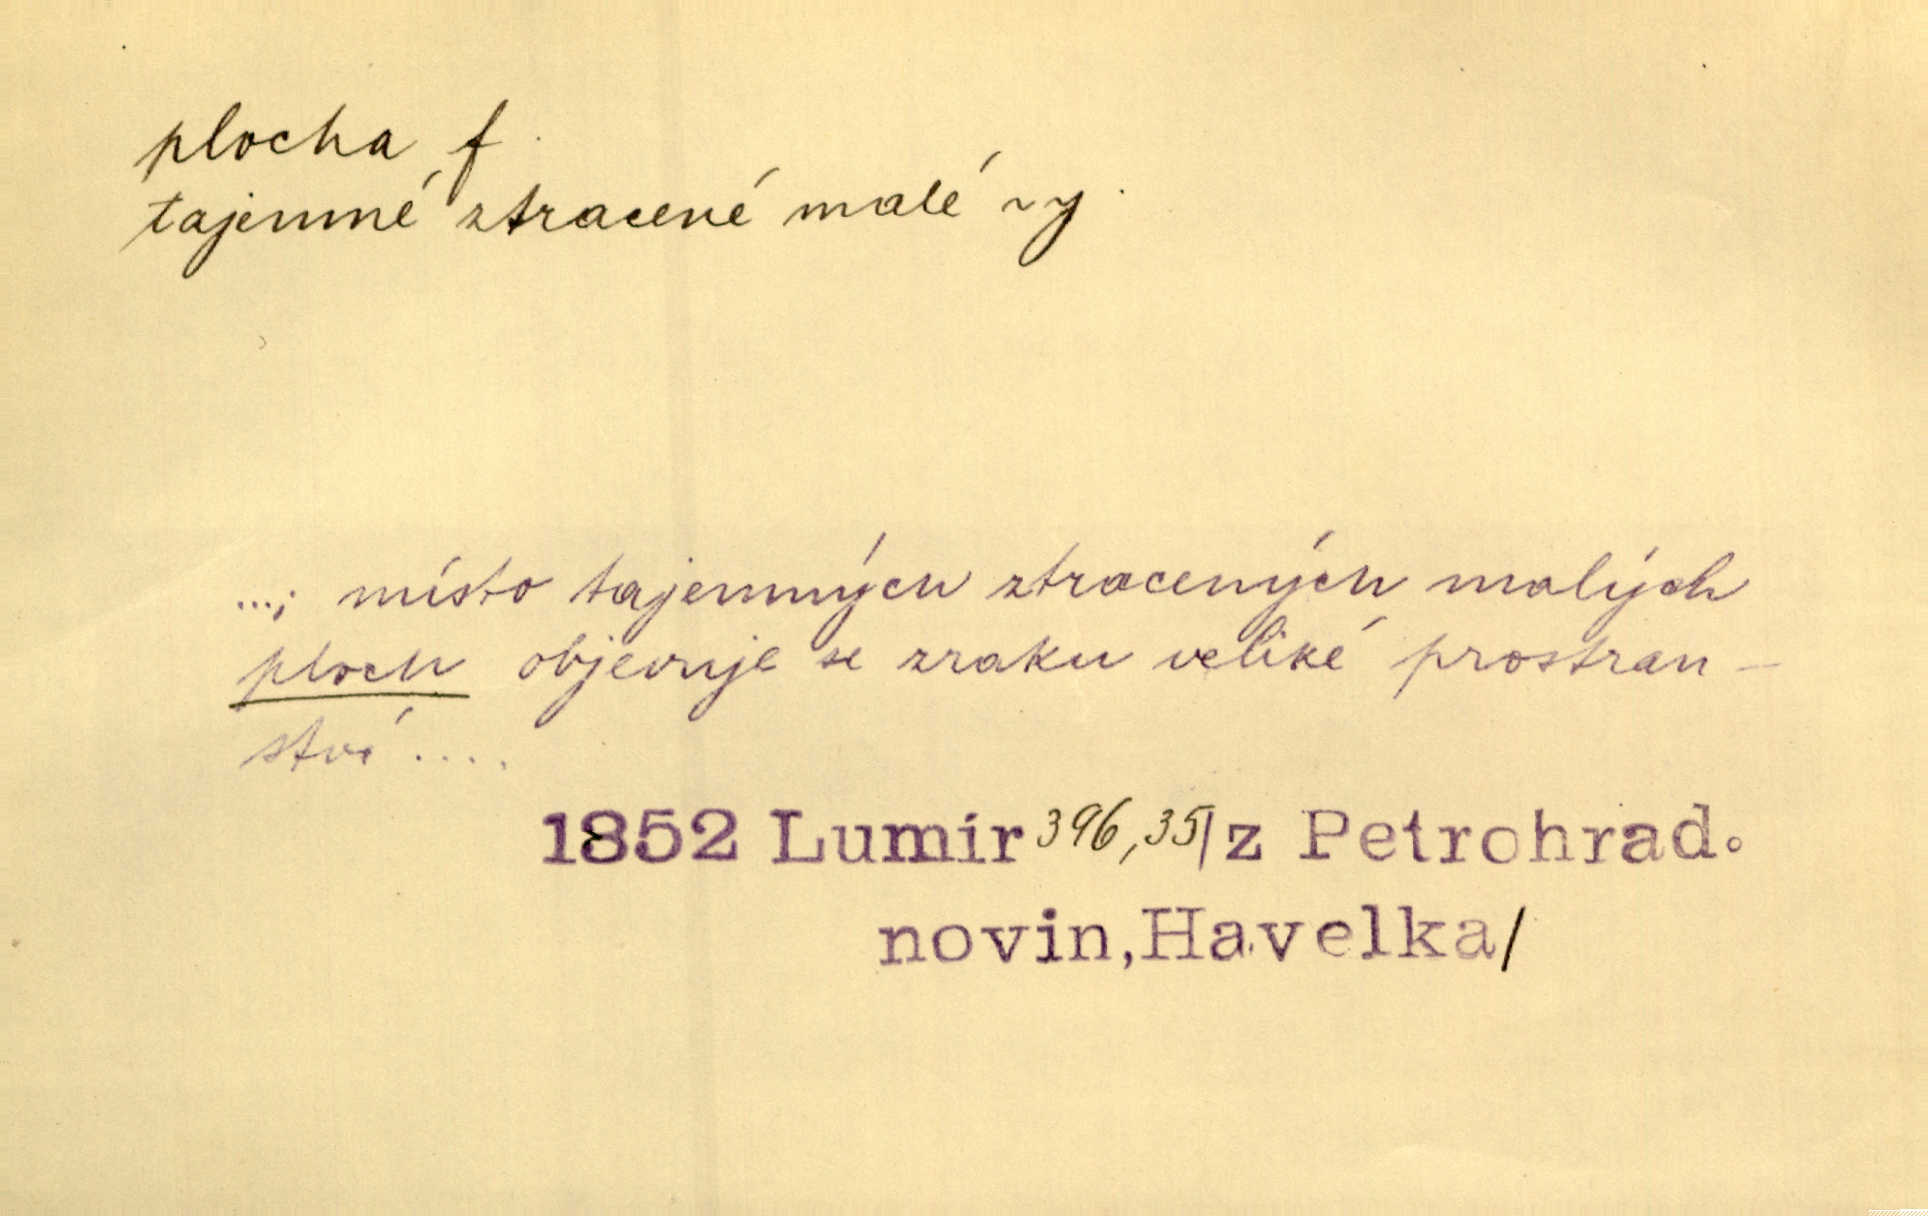 plocha f.
tajemné ztracené malé ~y.
...; místo tajemných ztracených malých
ploch objevuje se zraku veliké prostran-
ství ....
1852 Lumír 396,35/z Petrohrad.
novin,Havelka/